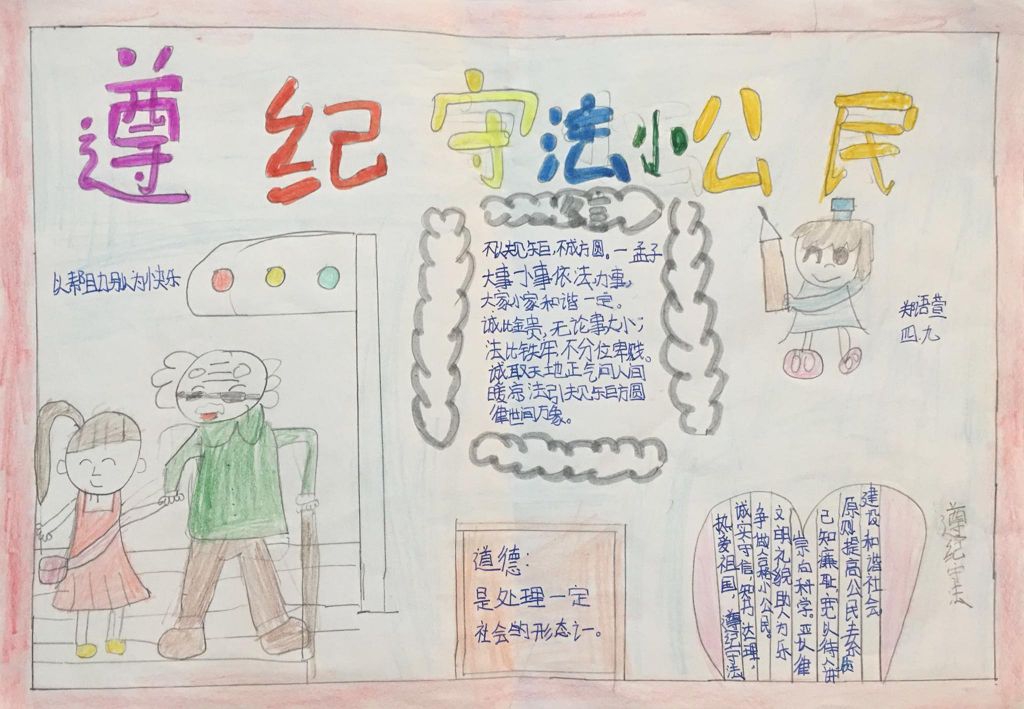 遵纪守法小公民
以帮助别人为快乐
名言
不以规矩,不成方圆。一孟子
大事小事依法办事,
大家小家和谐一定。
诚比金贵,无论事大小;
法比铁牢,不分位卑贱。
诚取天地正气问人间
暖凉法引规矩方圆
律世间万象。
郑语萱
四.九
道德:
是处理一定
社会的形态之一。
建设和谐社会
原则提高公民去素质
己知廉耻宽以待
崇向科学。严以律
文明礼貌助人为乐
争做合格小公民。
诚实守信,知书达理,
热爱祖国,遵纪守法
遵纪守法